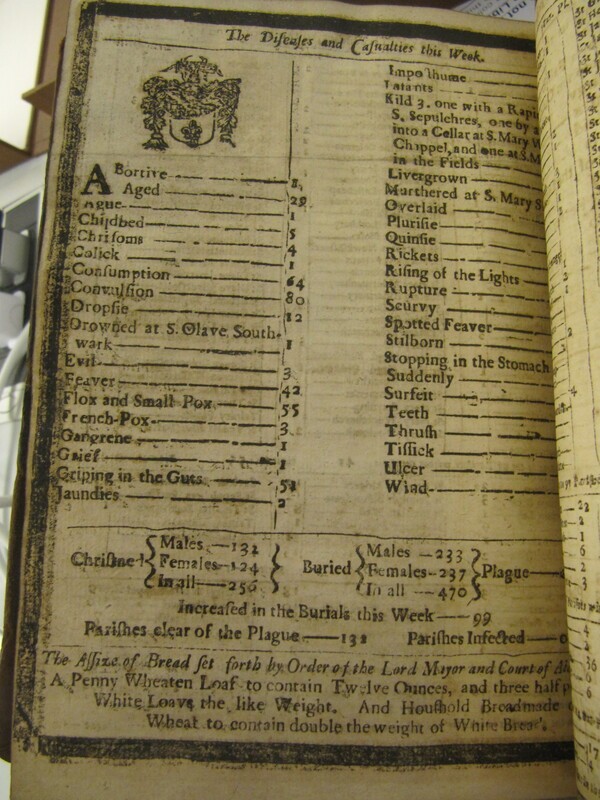 The Diseases and Casualties this Week.
Abortive 2
Aged 29
Ague 1
Childbed 5
Chrisoms 4
Colick 1
Consumption 64
Convulsion 80
Dropsie 12
Drowned at S. Olave South-
wark 1
Evil 3
Feaver 42
Flox and Small Pox 55
French-Pox 3
Gangrene 1
Grief 1
Griping in the Guts 51
Jaundies 2
Imposthume
Infants
Kild 3. one with a Rapi
S. Sepulchres, one by a
into a Cellar at S. Mary W
Chappel, and one at S. M
in the Fields
Livergrown
Murthered at S. Mary S
Overlaid
Plurisie
Quinsie
Rickets
Rising of the Lights
Rupture
Scurvy
Spotted Feaver
Stilborn
Stopping in the Stomach
Suddenly
Surfeit
Teeth
Thrush
Tissick
Ulcer
Wind
Christned { Males — 132 Females — 124 In all — 256 } Buried { Males — 233 Females — 237 In all — 470 } Plague — 0
Increased in the Burials this Week — 99
Parishes clear of the Plague — 132 Parishes Infected — 0
The Assize of Bread set forth by Order of the Lord Mayor and Court of Al
A Penny Wheaten Loaf to contain Twelve Ounces, and three half p
White Loaves the like Weight. And Houshold Bread made
Wheat to contain double the weight of White Bread.